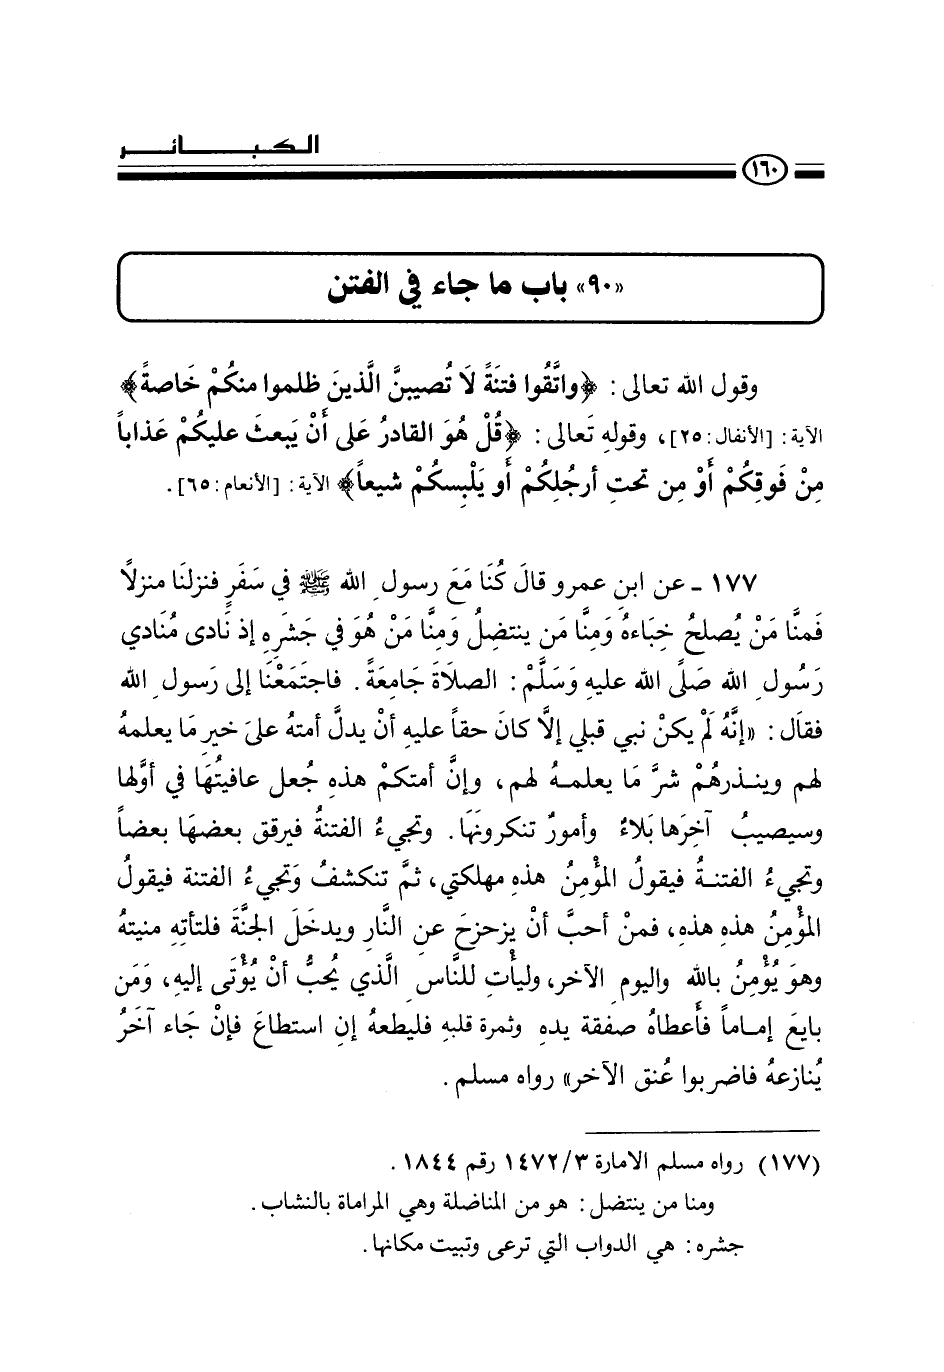 الكبائر
١٦٠
«٩٠» باب ما جاء في الفتن
وقول الله تعالى : ﴿واتَّقُوا فتنَةً لَا تُصيبنَّ الَّذينَ ظلموا منكُمْ خَاصةً﴾
الآية : [الأنفال : ٢٥] ، وقولهِ تَعالى : ﴿قُلْ هُوَ القادرُ عَلى أَنْ يَبعثَ عليكُمْ عَذاباً
مِنْ فَوقِكُمْ أَوْ مِن تحتِ أرجُلِكُمْ أَو يَلْبِسكُمْ شيعاً﴾ الآية : [الأنعام : ٦٥] .
١٧٧ ـ عن ابن عمرو قالَ كُنَا مَعَ رسول الله ﷺ في سَفَرٍ فنزلنَا منزلاً
فَمنَّا مَنْ يُصلحُ خِبَاءهُ وَمِنَّا مَن ينتضِلُ وَمِنَّا مَنْ هُوَ في جَشَرِهِ إذ نَادى مُنَادي
رَسُول الله صَلَّى الله عليهِ وَسَلَّمْ : الصلَاةَ جَامعَةً . فاجتَمعْنَا إلى رَسول الله
فقال : «إنَّهُ لَمْ يكنْ نبي قبلي إلَّا كانَ حقاً عليهِ أنْ يدلَّ أمتهُ علىَ خيرِ مَا يعلمهُ
لهم وينـذرهُمْ شرَّ مَا يعلمـهُ لهم ، وإنَّ أمتكمْ هذهِ جُعل عافيتُهَا في أوَّلها
وسيصيبُ آخِرَها بَلاءٌ وأمورٌ تنكرونَهَا . وتجيءُ الفتنةُ فيرقق بعضهَا بعضاً
وتجيءُ الفتنـةُ فيقولُ المؤْمِنُ هذهِ مهلكتي ، ثمَّ تنكشفُ وَتجيءُ الفتنة فيقولُ
المؤْمِنُ هذه هذهِ ، فمنْ أحبَّ أنْ يزحزحَ عنِ النَّارِ ويدخَلَ الجنَّةَ فلتأتهِ منيتهُ
وهوَ يُؤْمِنُ بالله واليوم الآخر ، وليأْتِ للنَّاس الَّذي يُحبُّ أنْ يُؤْتَى إليهِ ، وَمَن
بايعَ إمـاماً فَأعطاهُ صفقة يدهِ وثمرة قلبهِ فليطعهُ إنِ استطاعَ فإنْ جَاء آخَرُ
يُنازعهُ فاضربوا عُنق الآخر» رواه مسلم .
(١٧٧) رواه مسلم الامارة ٣/١٤٧٢ رقم ١٨٤٤ .
ومنا من ينتضل : هو من المناضلة وهي المراماة بالنشاب .
جشره : هي الدواب التي ترعى وتبيت مكانها .